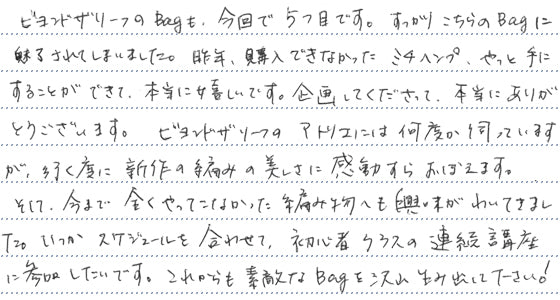 ビヨンドザリーフのBagも、今回で5つ目です。すっかりこちらのBagに
魅了されてしまいました。昨年、購入できなかったミチヘンプ、やっと手に
することができて、本当に嬉しいです。企画してくださって、本当にありが
とうございます。 ビヨンドザリーフの アトリエには何度か伺っています
が、行く度に 新作の編みの美しさに 感動すらおぼえます。
そして、今まで 全くやってこなかった編み物へも興味がわいてきまし
た。いつか スケジュールを合わせて、初心者クラスの連続講座
に参加したいです。これからも素敵なBagを沢山生み出して下さい!